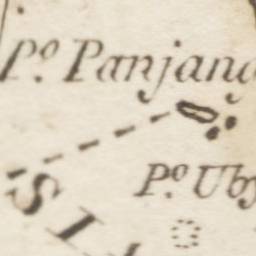 Po. Panjang
Po. Uby